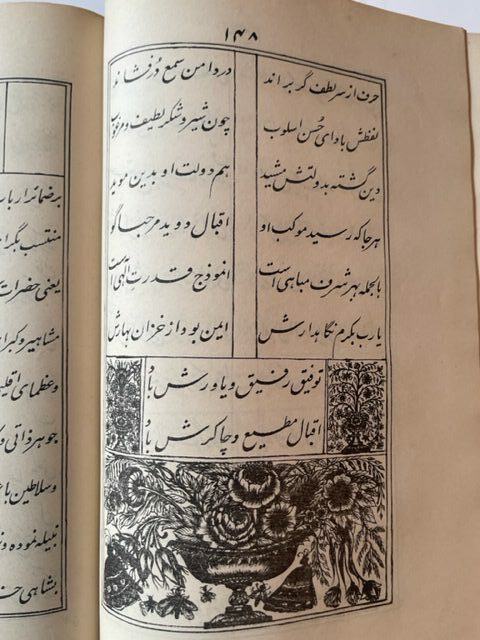 ۱۴۸
حرف از سر لطف گر براند در دامن سمع در فشاند
لفظش بادای حسن اسلوب چون شیر و شکر لطیف و مرغوب
دین گشته بدولتش مشید هم دولت او بدین موید
هر جا که رسید موکب او اقبال دوید مرحبا گو
بالجمله بهر شرف مباهی است انموذج قدرت الهی است
یارب بکرم نگاهدارش ایمن بود از خزان بهارش
توفیق رفیق و یاورش باد
اقبال مطیع و چاکرش باد
بر ضمائر ارباب
منتسب
یعنی حضرات
مشاهیر و
و عظمای
جوهر ذاتی و
و سلاطین با
نبیله نموده و
بشاهی